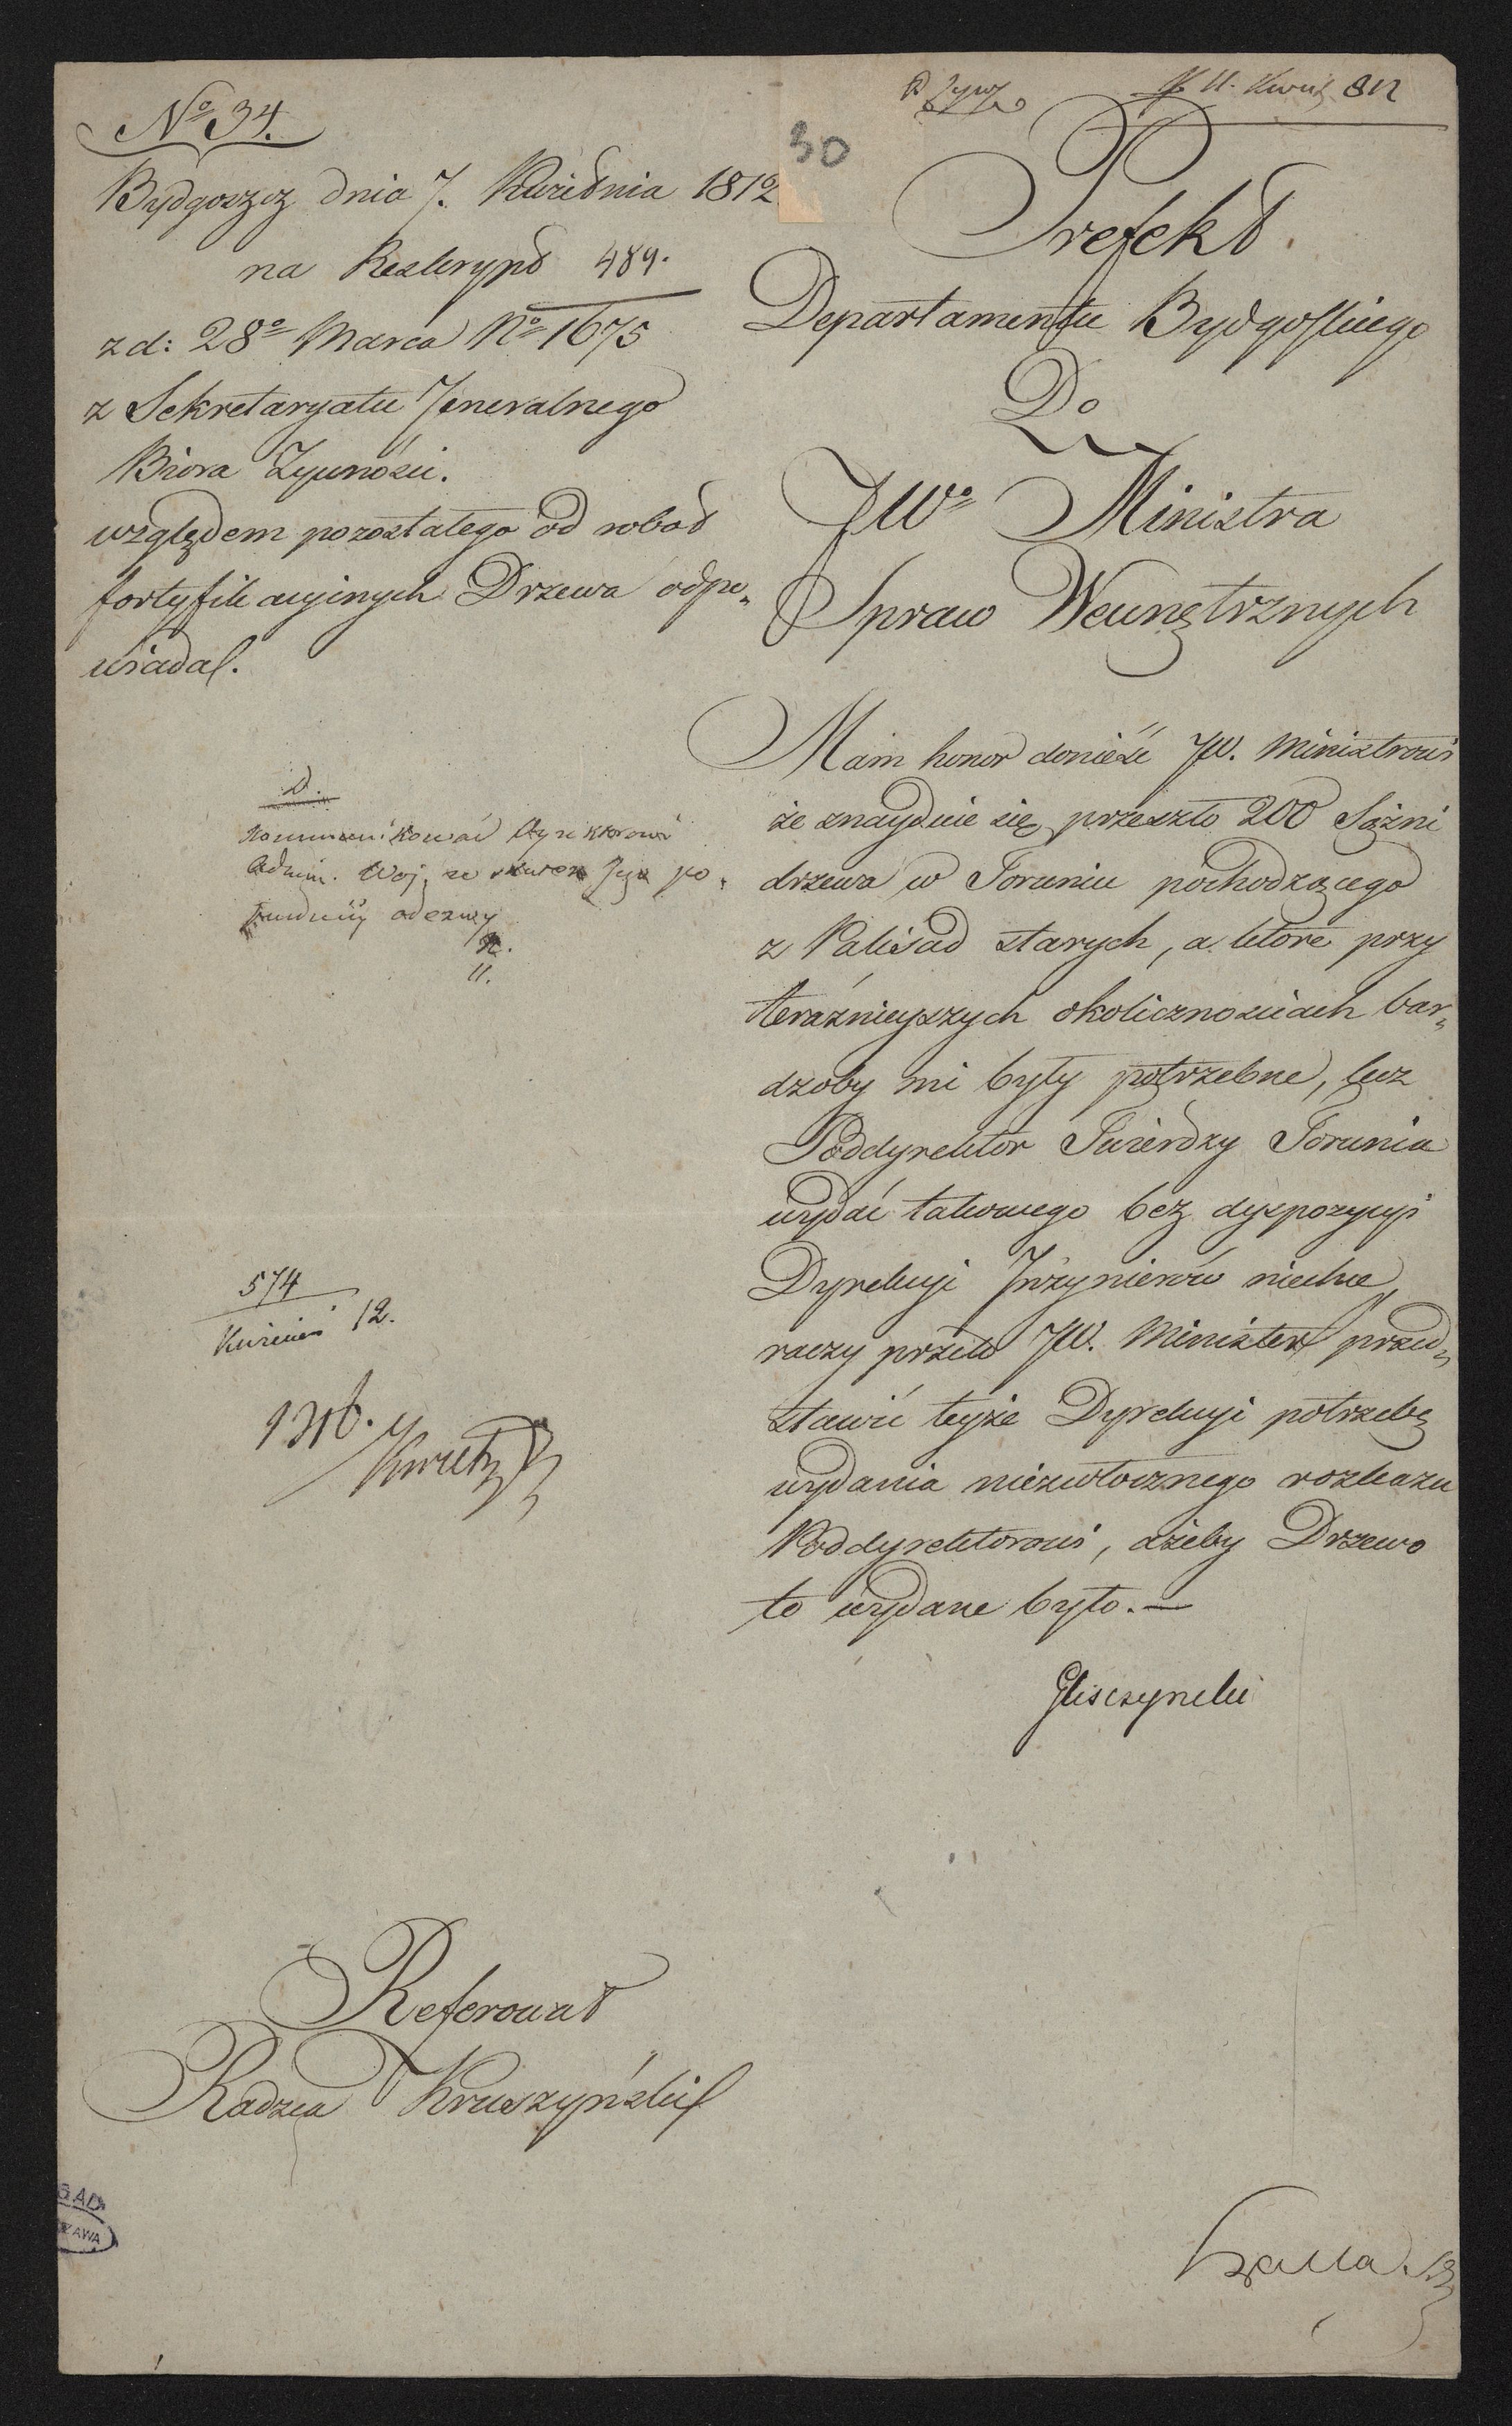 No 34.
Bydgoszcz dnia 7. Kwietnia 1812
na Reskrypt 489.
z d: 28o Marca No 1675
z Sekretaryatu Jeneralnego
Biora Żywności.
względem pozostałego od robot
fortyfikacyinych Drzewa odpo„
wiada.
D.
Kommunikować Dyrektorowi
Admin. Woj. ze
odezwy
11.
574
Kwiecień 12.
Referował
Radzca Kruszyński
30
11. Kwiet. 812
Prefekt
Departamentu Bydgoskiego
Do
JWo Ministra
Spraw Wewnętrznych
Mam honor donieść JW. Ministrowi
że znayduie się przeszło 200 Sążni
drzewa w Toruniu pochodzącego
z Palisad starych, a które przy
teraźnieyszych okolicznościach bar„
dzoby mi były potrzebne, lecz
Poddyrektor Twierdzy Torunia
wydać takowego bez dyspozycyi
Dyrekcyi Inżynierów niechce,
raczy przeto JW. Minister przed„
stawić teyże Dyrekcyi potrzebę
wydania niezwłocznego rozkazu
Poddyrektorowi, ażeby Drzewo
to wydane było.—
Gliszczynski
GAD
ZAWA